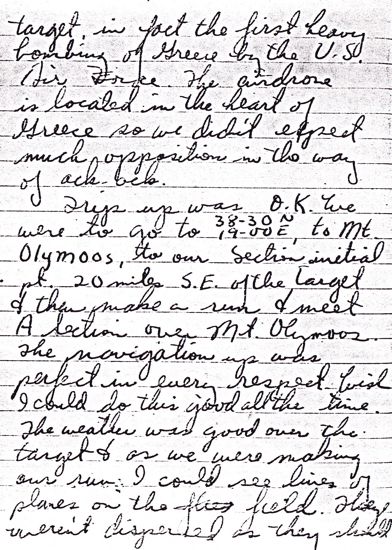 target, in fact the first heavy
bombing of Greece by the U.S.
Air Force. The airdrone
is located in the heart of
Greece so we didn't expect
much opposition in the way
of ack-ack.
Trip up was O.K. We
were to go to 38-30 N 19-00 E, to Mt.
Olymoos, to our Section initial
pt. 20 miles S.E. of the target
& then make a run & meet
A section over Mt. Olymoos.
The navigation up was
perfect in every respect. Wish
I could do this good all the time.
The weather was good over the
target & as we were making
our run I could see lines of
planes on the field. They
weren't dispersed as they should